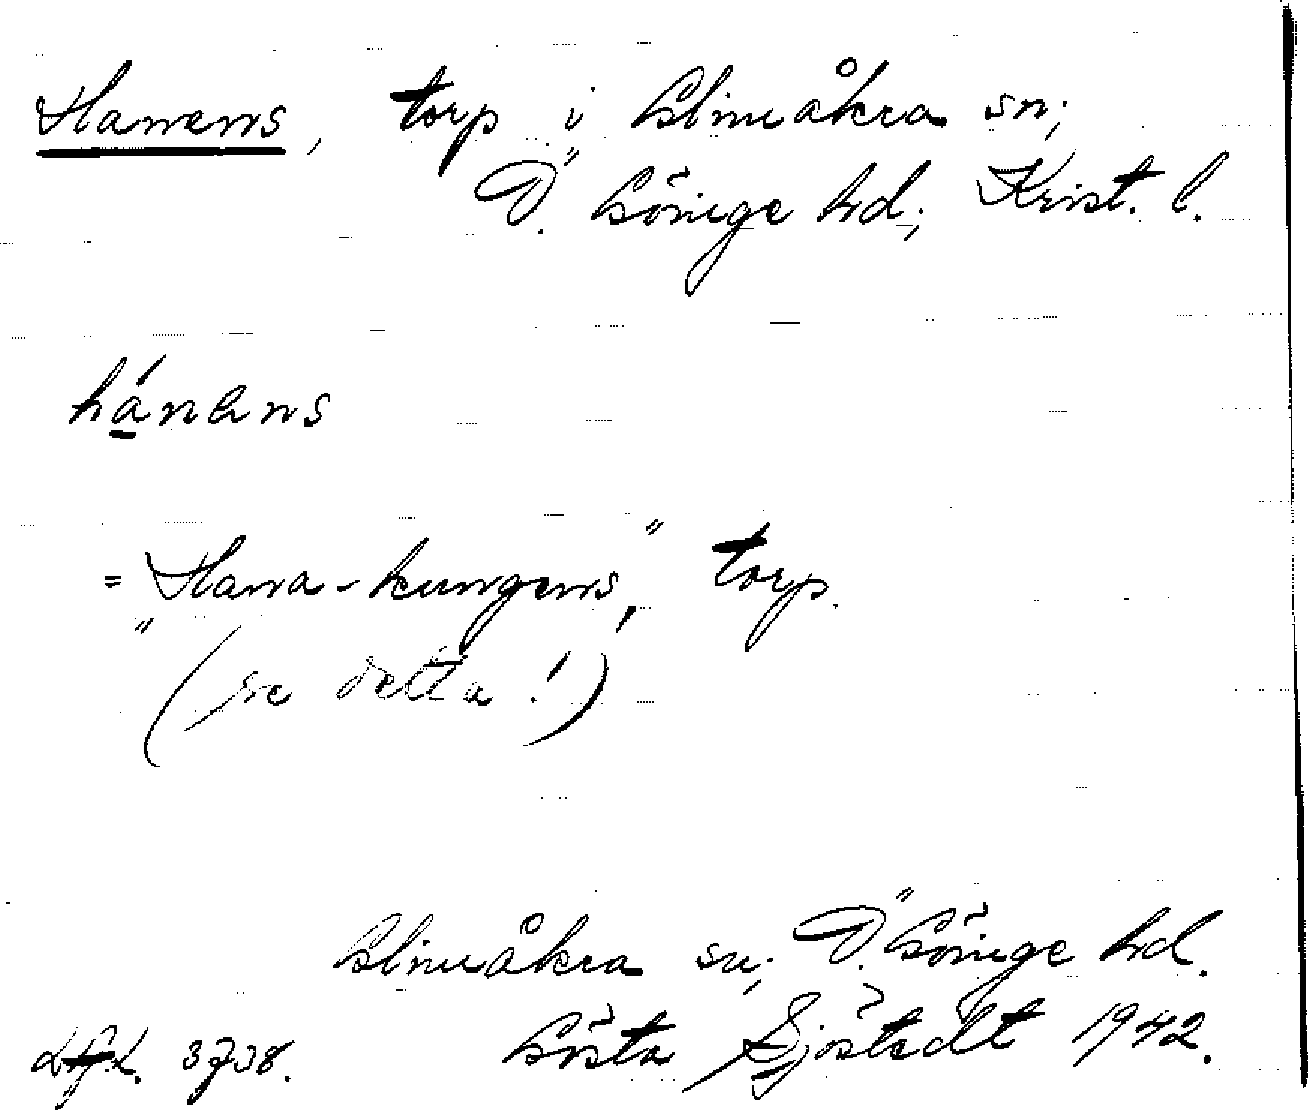 Hanens, torp i Glimåkra sn;
Ö. Göinge hd; Krist. l.
hánəns
= "Hana-kungens," torp.
(se detta!)
Glimåkra sn; Ö. Göinge hd.
Gösta Sjöstedt 1942.
3738.